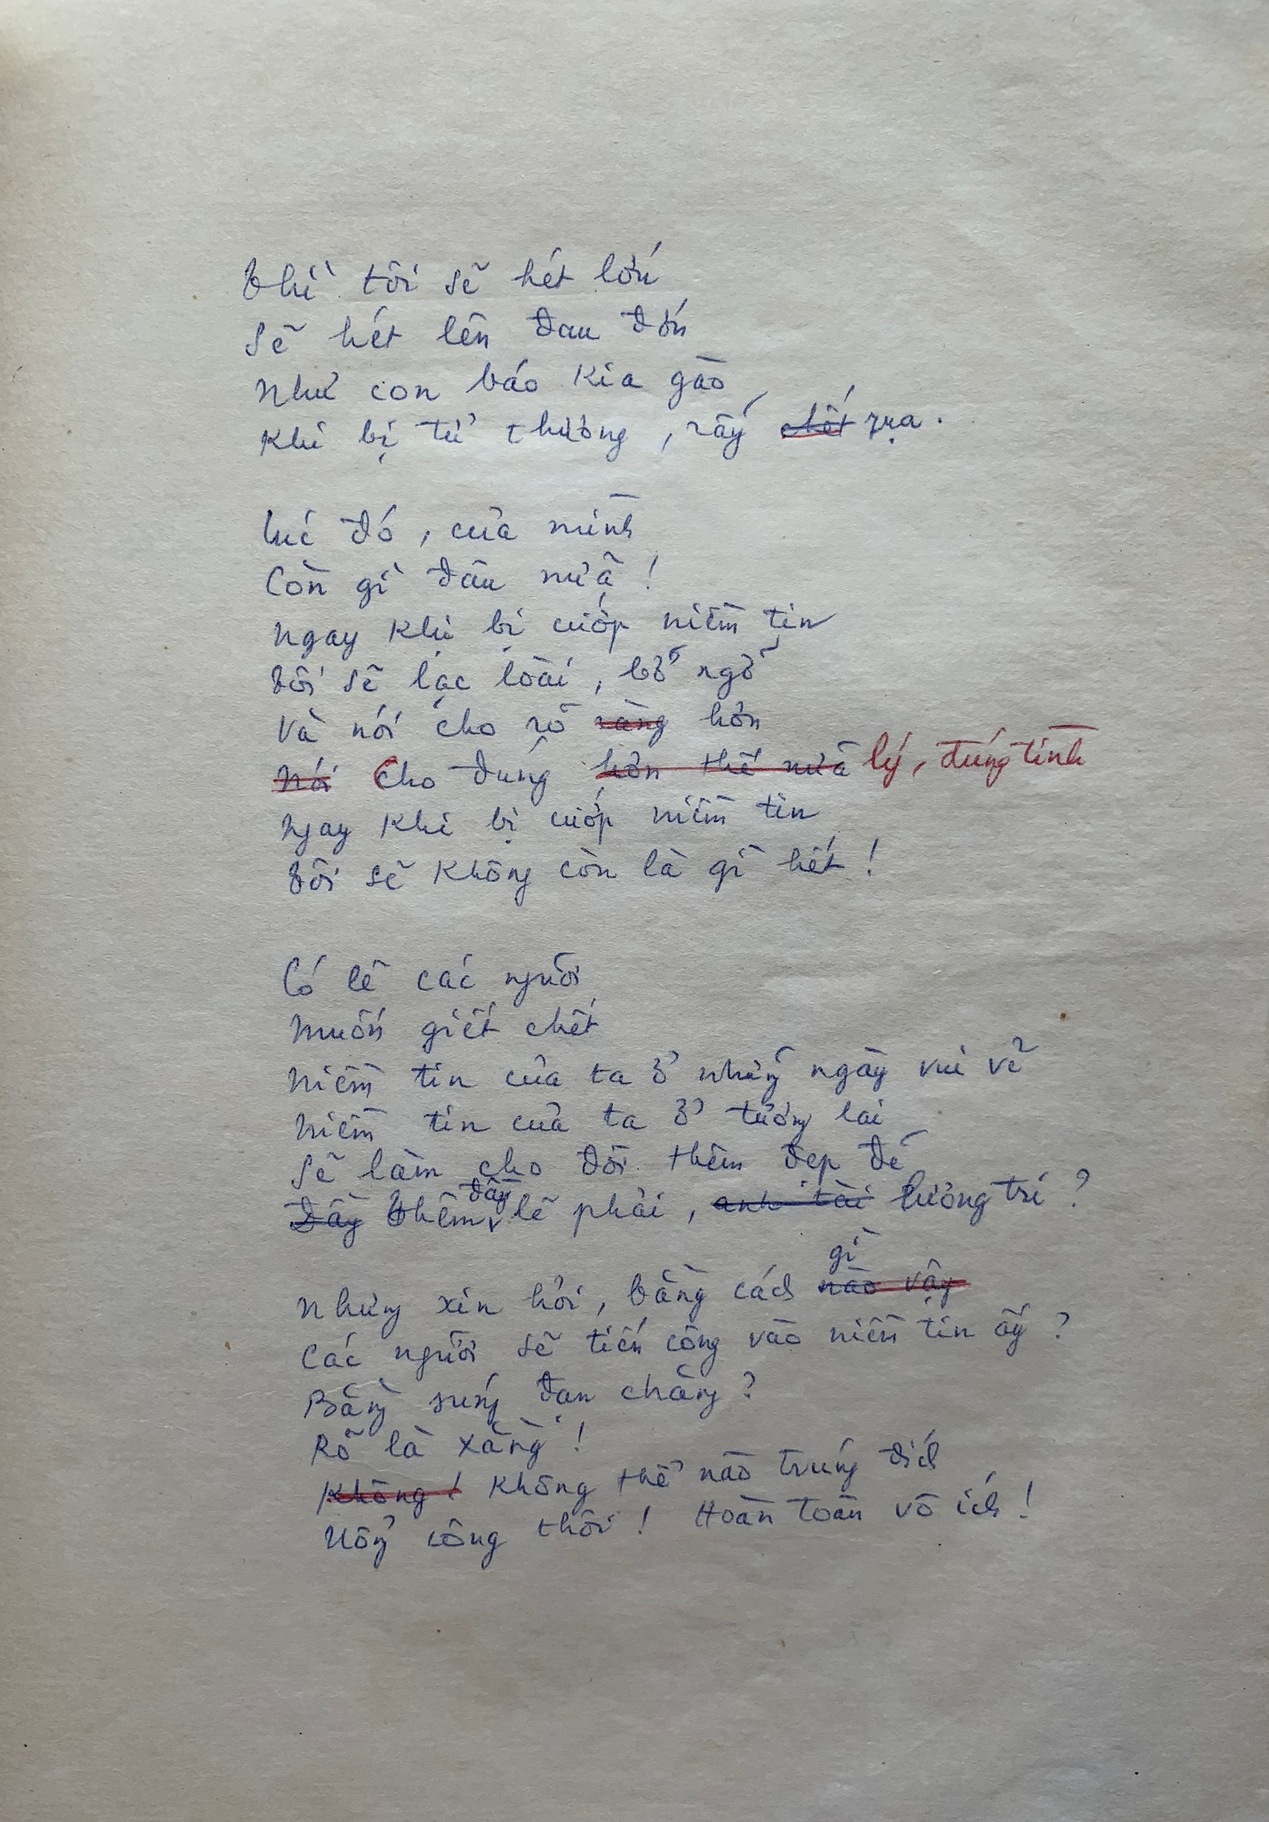 Thì tôi sẽ hét lớn
Sẽ hét lên đau đớn
Như con báo kia gào
Khi bị tử thương, rãy chết rụa.
Lúc đó, của mình
Còn gì đâu nữa!
Ngay khi bị cướp niềm tin
Tôi sẽ lạc loài, bỡ ngỡ
Và nói cho rõ ràng hơn
Nói Cho đúng hơn thế nữa lý, đúng tình
Ngay khi bị cướp niềm tin
Tôi sẽ không còn là gì hết!
Có lẽ các người
Muốn giết chết
Niềm tin của ta ở những ngày vui vẻ
Niềm tin của ta ở tương lai
Sẽ làm cho đời thêm đẹp đẽ
Đầy Thêm đầy lẽ phải, anh tài lương tri?
Nhưng xin hỏi, bằng cách nào vậy gì
Các người sẽ tiến công vào niềm tin ấy?
Bằng súng đạn chăng?
Rõ là xằng!
Không! Không thể nào trúng đích
Uổng công thôi! Hoàn toàn vô ích!